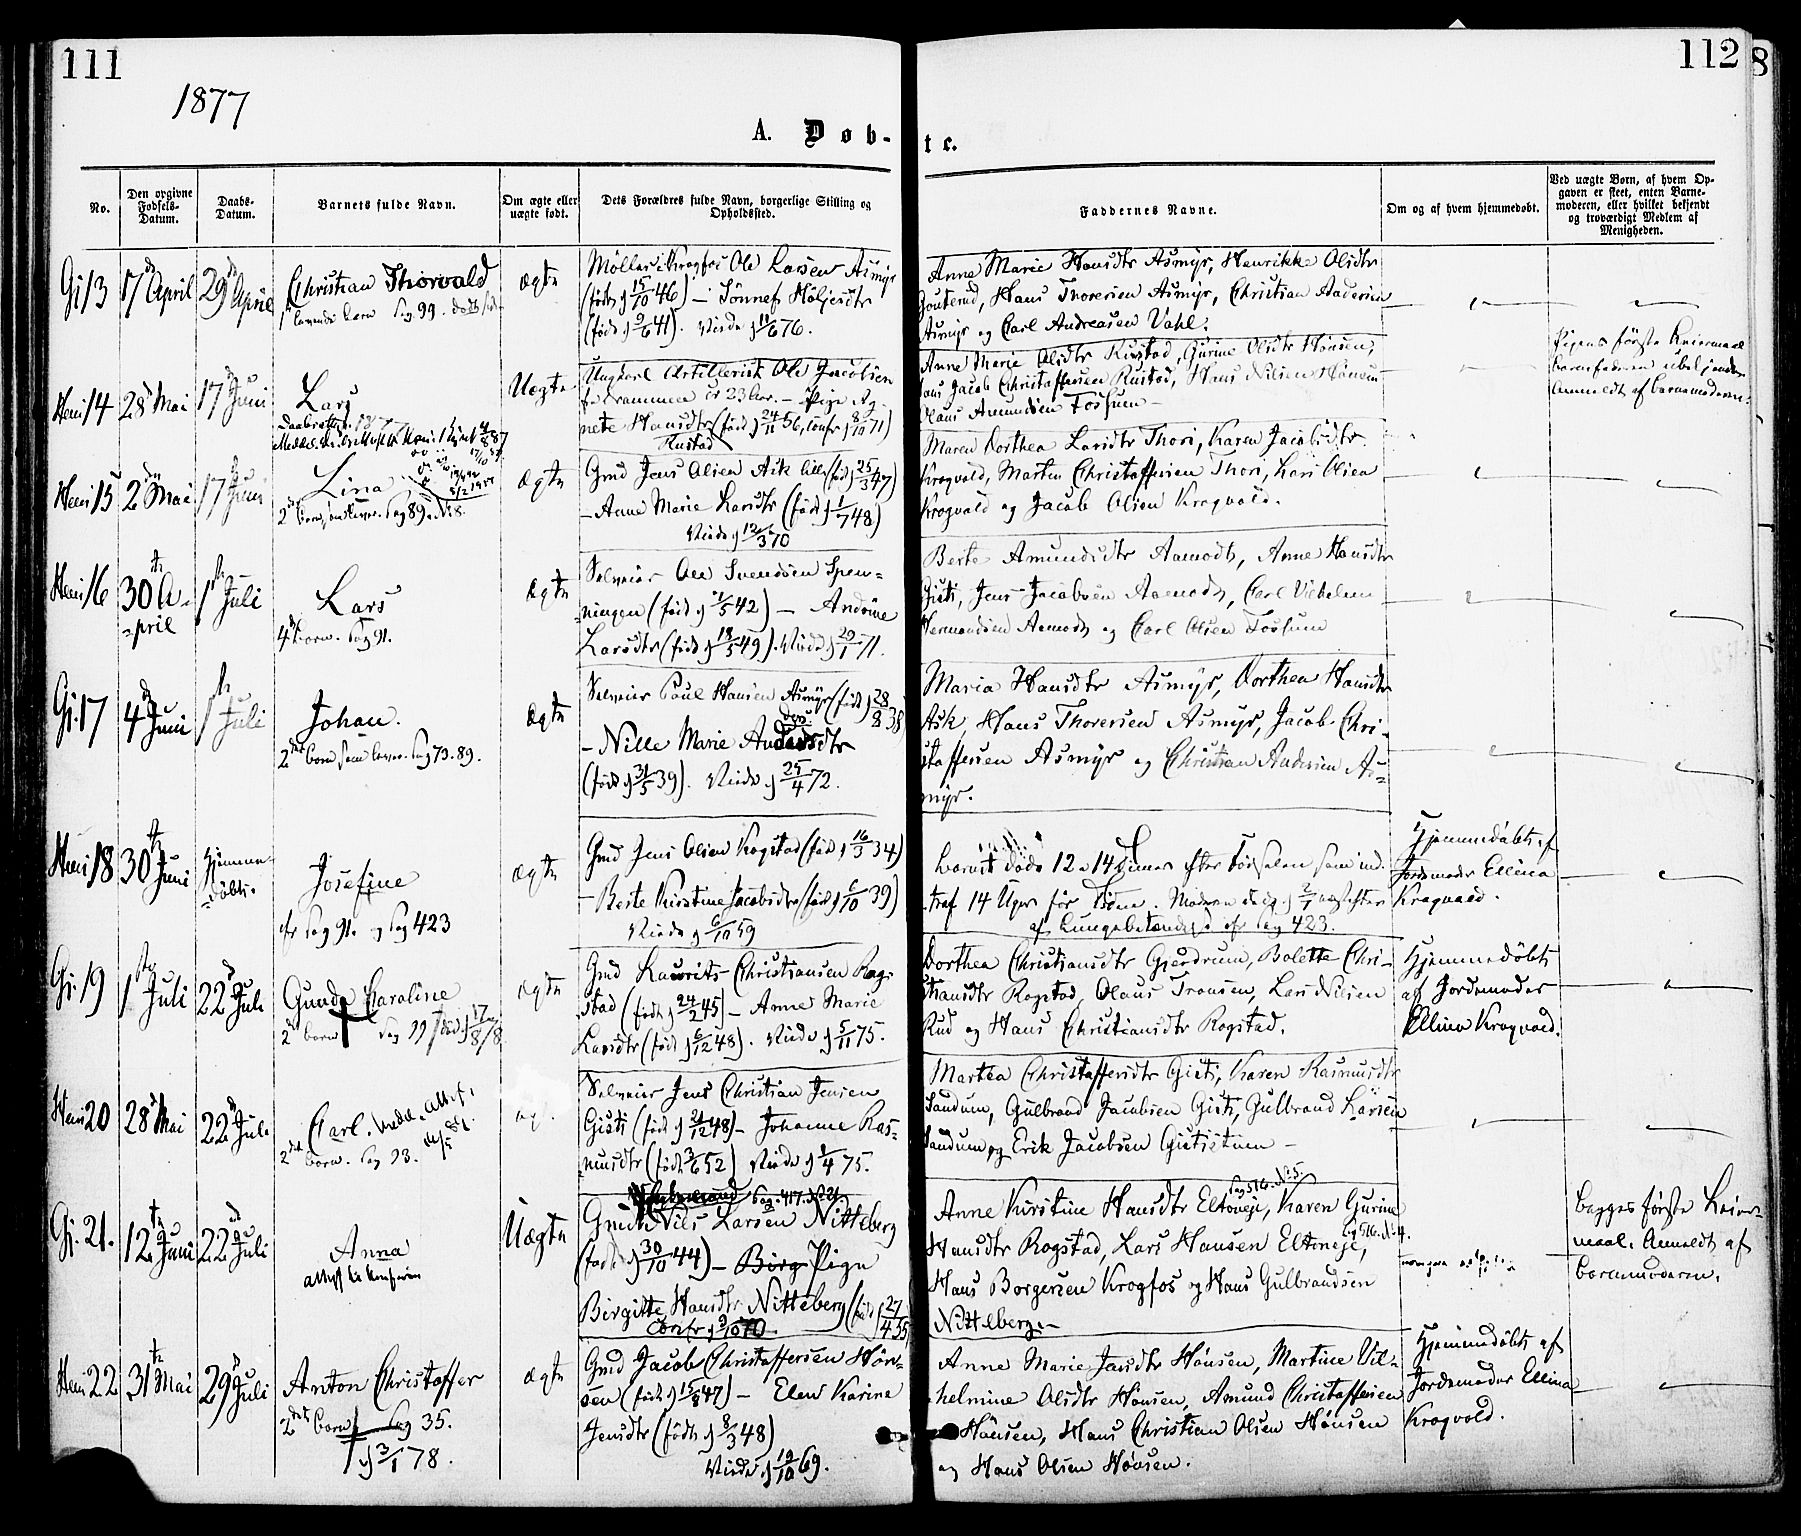 111
112
8
1877
A. Døb-
te.
No.
Den opgivne
Fødsels-
Datum.
Daabs-
Datum.
Barnets fulde Navn.
Om ægte eller
uægte født.
Dets Forældres fulde Navn, borgerlige Stilling og
Opholdssted.
Faddernes Navne.
Om og af hvem hjemmedøbt.
Ved uægte Børn, af hvem Op-
gaven er skeet, enten Barne-
moderen, eller hvilket bekjendt
og troværdigt Medlem af
Menigheden.
Gj 13
17d April
29d April
Christian Thorvald
Pag 99.
Ægte
Møller i Krogfos Ole Larsen Asmyr
(født d 15/10 46) – Tønnes Høljesdtr
(født d 9/6 41). Viede d 11/6 76.
Anne Marie Hansdtr Asmyr, Henrikke Olsdtr
Hans Thoresen Asmyr, Christian Andersen
Asmyr og Carl Andreasen Dahl.
Hem 14
28d Mai
17d Juni
Lars
Uægte
Ungkarl Artillerist Ole Jacobsen
er 23 Aar. – Pige Ag-
nete Hansdtr (født d 24/11 56, conf. d 8/10 71)
Rustad
Anne Marie Olsdtr Rustad, Gurine Olsdtr Hønsen,
Hans Jacob Christoffersen Rustad, Hans Nilsen Hønsen
Olaus Amundsen Fossum –
Pigens første Leiermaal
barnefaderen ubekjendt
Anmeldt af barnemoderen.
Hem 15
2d Mai
17d Juni
Lina
2det barn, Pag 89. No 8.
Ægte
Gmd Jens Olsen Ask (født d 25/3 47)
– Anne Marie Larsdtr (født d 1/7 48)
Viede d 12/3 70
Maren Dorthea Larsdtr Thori, Karen Jacobsdtr
Krogvold, Martin Christoffersen Thori, Lars Olsen
Krogvold og Jacob Olsen Krogvold.
Hem 16
30te A-
pril
1ste Juli
Lars
4de barn. Pag 91.
Ægte
Selveier Ole Svendsen Spen-
ningen (født d 1/5 42) – Andrine
Larsdtr (født d 18/5 49). Viede d 29/1 71.
Berte Amundsdtr Aamodt, Anne Hansdtr
Gisti, Jens Jacobsen Aamodt, Carl Vilhelm
Hermandsen Aamodt og Carl Olsen Fossum
Gj. 17
4d Juni
1ste Juli
Johan.
2det barn som lever. Pag 79. 89.
Ægte
Selveier Paul Hansen Asmyr (født d 28/8 38)
– Nille Marie Andersdtr
(født d 31/5 39). Viede d 25/4 72.
Maria Hansdtr Asmyr, Dorthea Hansdtr
Ask, Hans Thoresen Asmyr, Jacob Chri-
stoffersen Asmyr og Christian Andersen As-
myr.
Hem 18
30te Juni
Hjemme-
døbt.
Josefine
cfr Pag 91. og Pag 423
Ægte
Gmd Jens Olsen Rogstad (født d 16/3 34)
– Berte Kirstine Jacobsdtr (født d 6/10 39)
Viede d 6/10 59
barnet døde 12 a 14 Timer efter Fødselen som ind-
traf 14 Uger før Tiden. Moderen døde d 2/7 næstefter
af Lungebetændelse cfr Pag 423.
Hjemmedøbt af
Jordemoder Ellina
Krogvold.
Gj. 19
1ste Juli
22d Juli
Gunda Caroline
2det barn Pag 99 død d 17/8 78
Ægte
Gmd Laurits Christiansen Rog-
stad (født d 24/2 45) – Anne Marie
Larsdtr (født d 6/12 48). Viede d 5/11 75.
Dorthea Christiansdtr Gjerdrum, Bolette Chri-
stiansdtr Rogstad, Olaus Tronsen, Lars Nilsen
Rud og Hans Christiansdtr Rogstad.
Hjemmedøbt
af Jordemoder
Ellina Krogvold.
Hem 20
28d Mai
22d Juli
Carl.
2det barn. Pag 93.
Selveier Jens Christian Jensen
Gisti (født d 21/12 48) – Johanne Ras-
musdtr (født 3/6 52) Viede d 1/4 75.
Marthea Christoffersdtr Gisti, Karen Rasmusdtr
Sandum, Gulbrand Jacobsen Gisti, Gulbrand Larsen
Sandum og Erik Jacobsen Gististuen –
Gj. 21.
12te Juni
22d Juli
Anna
attest til Konfirm
Uægte
Pag. 417. No 21.
Gmd Nils Larsen Nitteberg
(født d 30/10 44) – Pige
Birgitte Hansdtr Nitteberg (født d 27/4 55
Confr d 9/10 70.
Pag 516. No 5.
Anne Kirstine Hansdtr Eltoneje, Karen Gurine
Pag 516. No 4.
Hansdtr Rogstad, Lars Hansen Eltoneje,
Hans Borgersen Krogfos og Hans Gulbrandsen
Nitteberg. –
begges første Leier-
maal. Anmeldt af
barnemoderen.
Hem 22
31te Mai
29d Juli
Anton Christoffer
2det barn Pag 35.
† d 3/1 78.
Ægte
Gmd Jacob Christoffersen Høn-
sen (født d 15/8 47) – Elen Karine
Jensdtr (født d 8/3 48)
Viede d 12/10 69.
Anne Marie Jansdtr Hønsen, Martine Vil-
helmine Olsdtr Hønsen, Amund Christoffersen
Hønsen, Hans Christian Olsen Hønsen
og Hans Olsen Hønsen.
Hjemmedøbt af
Jordemoder Ellina
Krogvold.